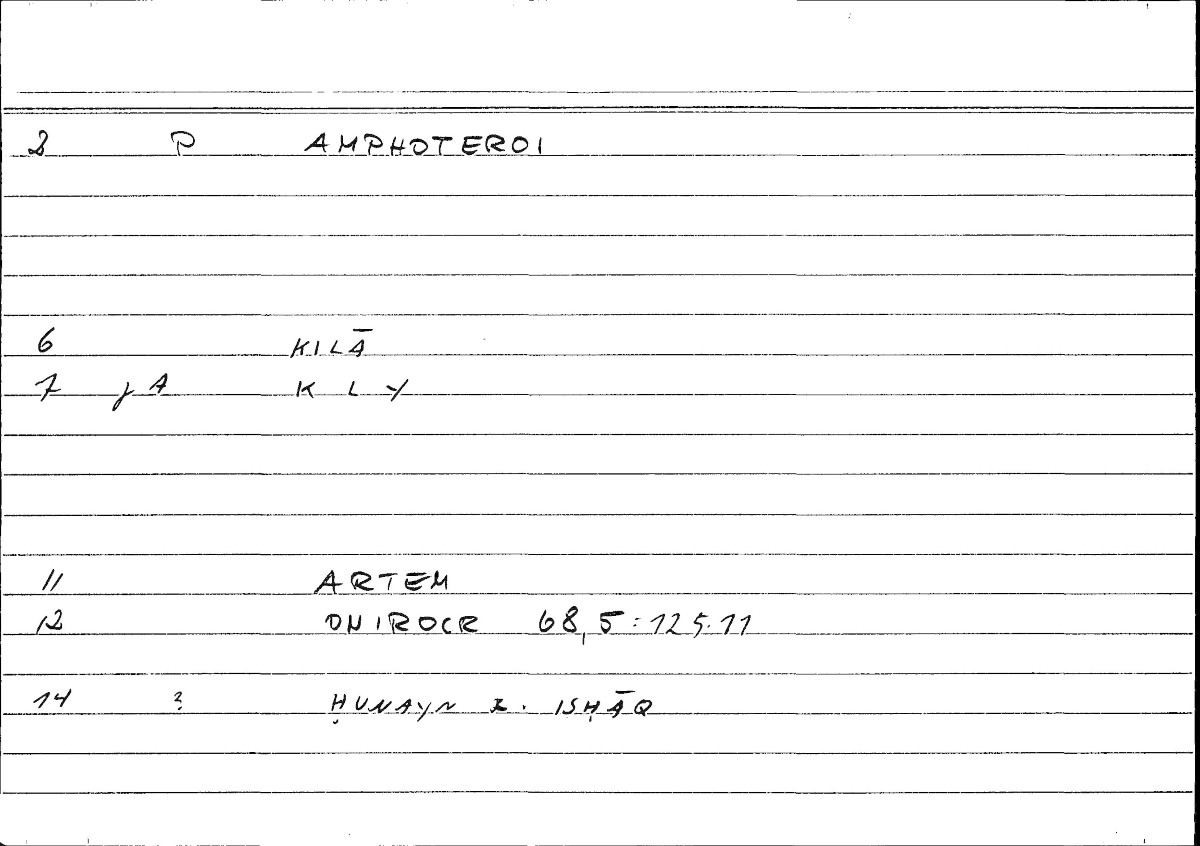 2 P AMPHOTEROI
6 KILĀ
7 jA K L Y
11 ARTEM
12 ONIROCR 68,5:125.11
14 ? ḤUNAYN B. ISḤĀQ